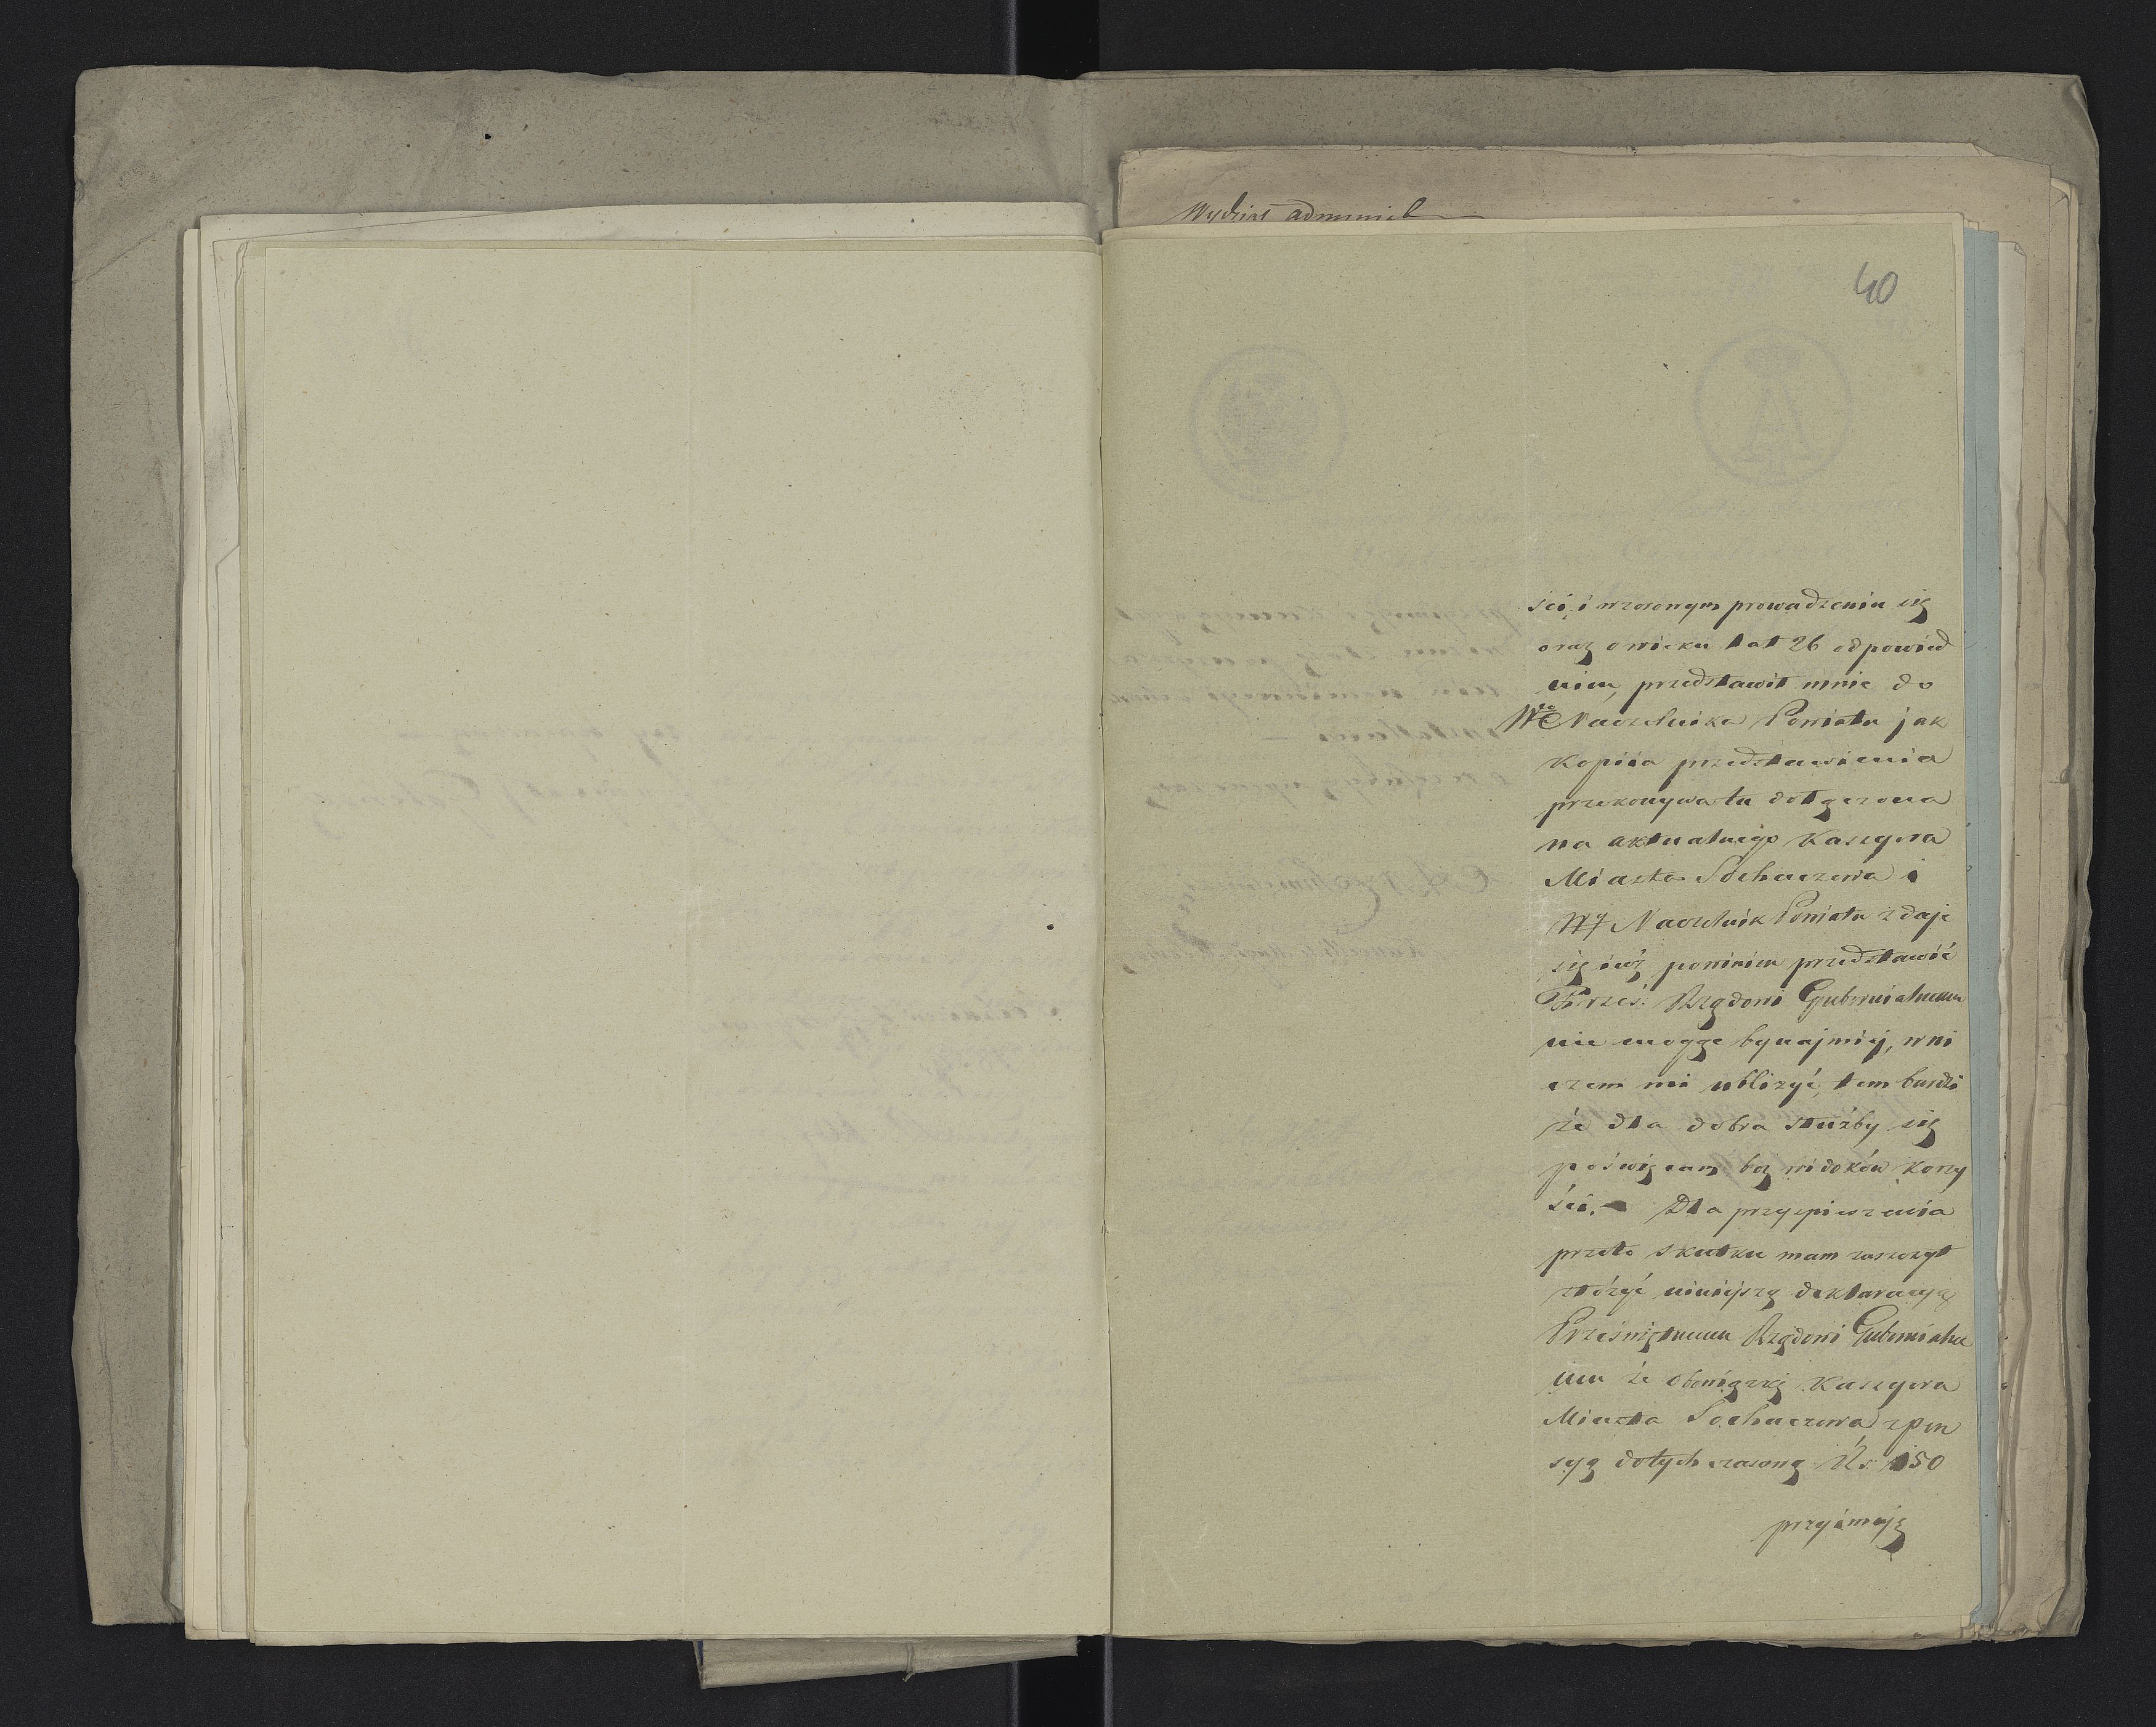 Wydział administ
40
ści, i wzorowym prowadzeniu się
oraz o wieku lat 26 odpowied
nim, przedstawił mnie do
WGo Naczelnika Powiatu jak
kopiia przedstawienia
przekonywa tu dołączona
na aktualnego Kassyera
Miasta Sochaczewa i
WJ Naczelnik Powiatu zdaje
się iuż powinien przedstawić
Prześ: Rządowi Gubernialnemu
nie mogąc bynajmiéj, w ni
czem mi ubliżyć, tem bardzi
że dla dobra służby się
poświęcam bez widoków korzy
ści. – Dla przyspieszenia
przeto skutku mam zaszczyt
złóżyć niniejszą deklaracyą
Przeświętnemu Rządowi Gubernialne
mu że obowiązki Kassyera
Miasta Sochaczewa z pen
syą dotychczasową Rs: 150
przyimuję